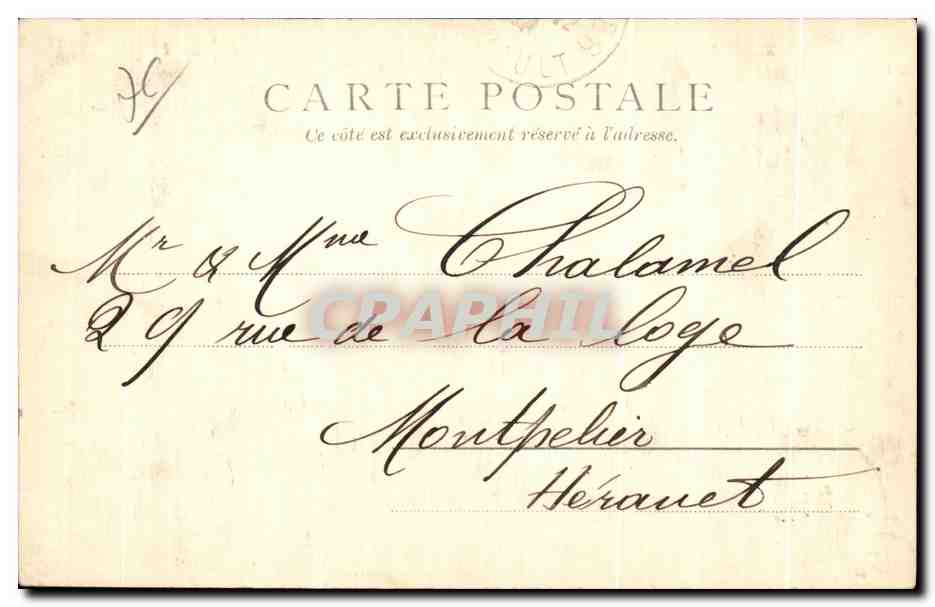 ULT
CARTE POSTALE
Ce côté est exclusivement réservé à l'adresse.
Mr & Mme Chalamel
29 rue de la loge
CPAPHIL
Montpelier
Hérault